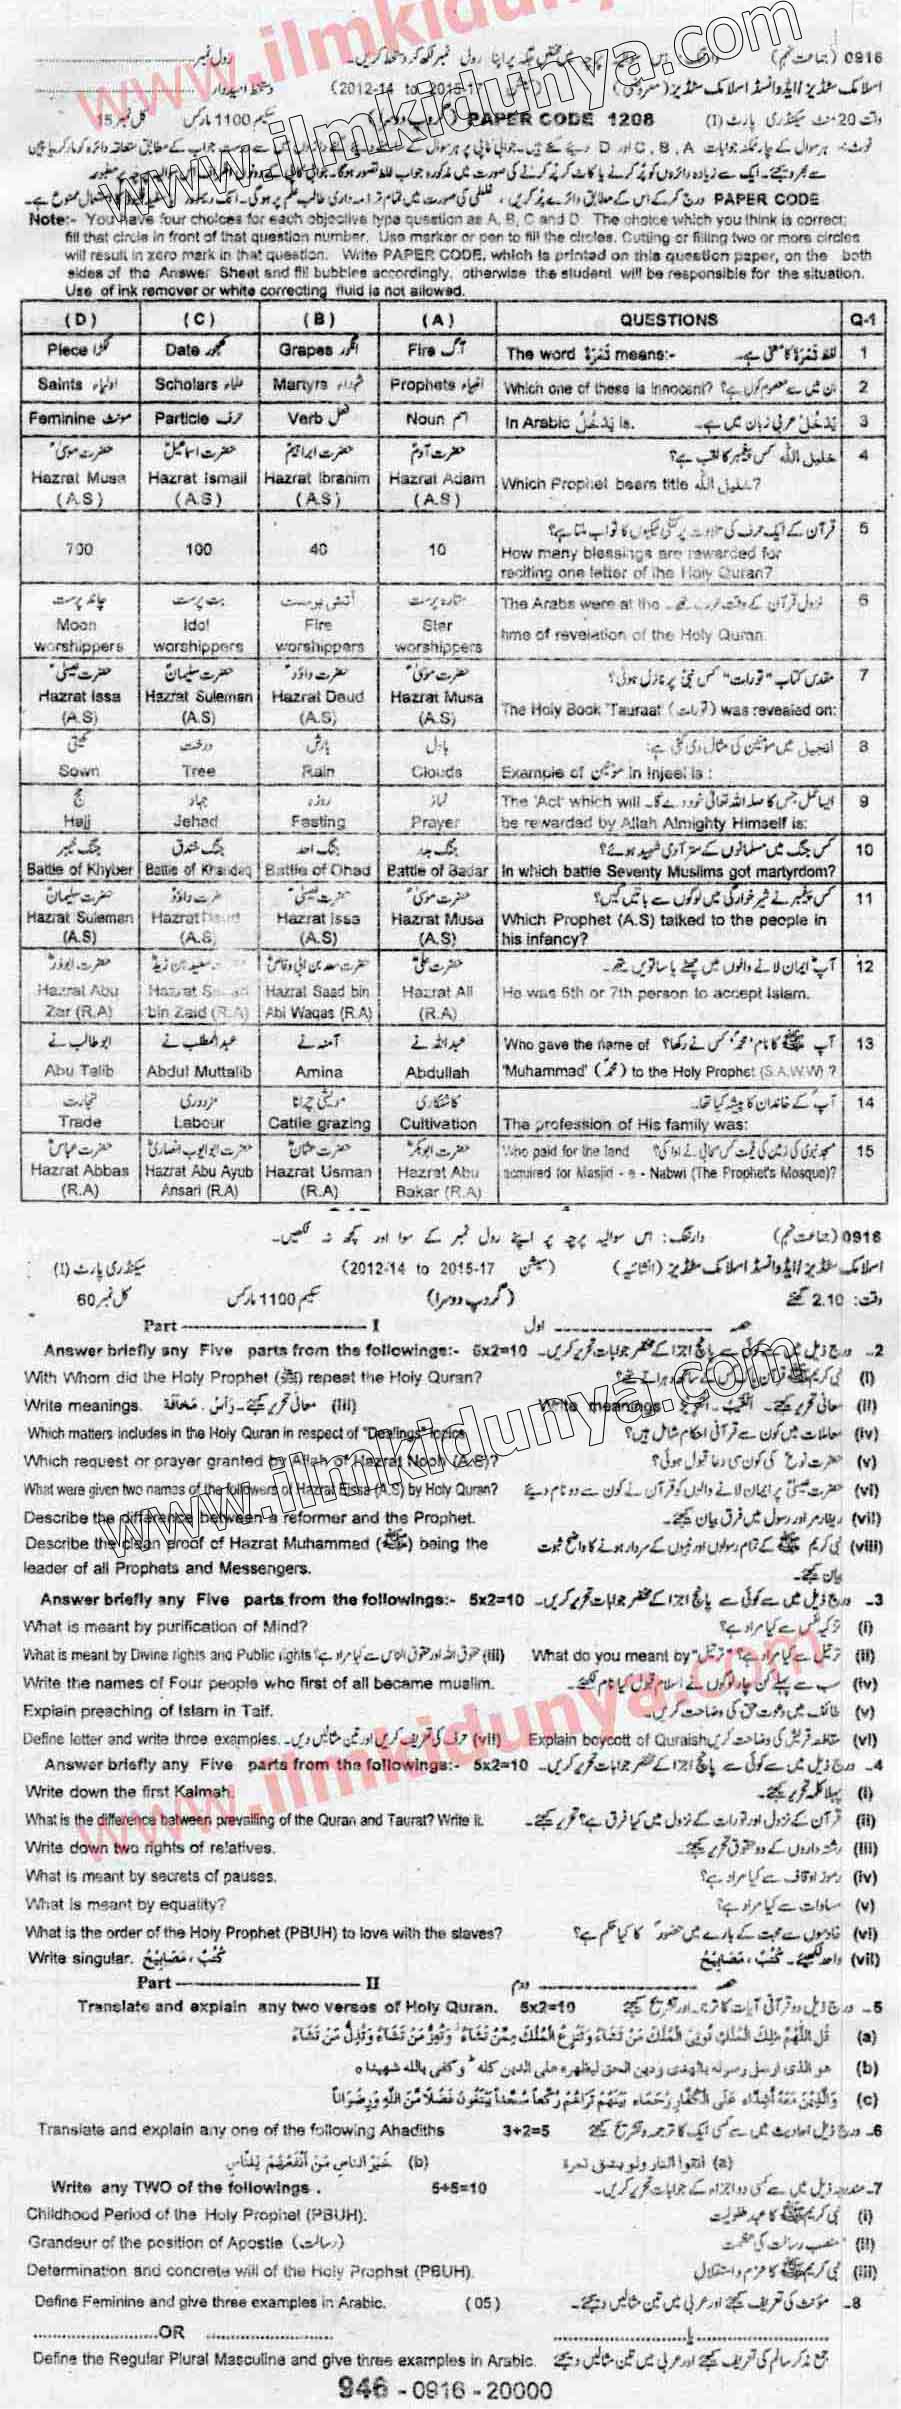 www.ilmkidunya.com
0916 (جماعت نہم) وارننگ : اس سوالیہ پرچہ میں مختص جگہ پر اپنا رول نمبر لکھ کر دستخط کریں۔ رول نمبر
اسلامک سٹڈیز / ایڈوانسڈ اسلامک سٹڈیز (معروضی) (سیشن 2012-14 to 2015-17) دستخط امیدوار
وقت 20 منٹ سیکنڈری پارٹ (I) PAPER CODE 1208 (گروپ دوسرا) سکیم 1100 مارکس کل نمبر 15
Note:- You have four choices for each objective type question as A, B, C and D. The choice which you think is correct;
fill that circle in front of that question number. Use marker or pen to fill the circles. Cutting or filling two or more circles
will result in zero mark in that question. Write PAPER CODE, which is printed on this question paper, on the both
sides of the Answer Sheet and fill bubbles accordingly, otherwise the student will be responsible for the situation.
Use of ink remover or white correcting fluid is not allowed.
(D) (C) (B) (A) QUESTIONS Q-1
Piece ٹکڑا Date کھجور Grapes انگور Fire آگ The word تَمْرَة means:- لفظ تَمْرَة کا معنی ہے۔ 1
Saints اولیاء Scholars علماء Martyrs شہداء Prophets انبیاء Which one of these is innocent? ان میں سے معصوم کون ہے؟ 2
Feminine مونث Particle حرف Verb فعل Noun اسم In Arabic يَدْخُلُ is. يَدْخُلُ عربی زبان میں ہے۔ 3
حضرت موسیٰ حضرت اسماعیل حضرت ابراہیم حضرت آدم خلیل اللہ کس پیغمبر کا لقب ہے؟ 4
Hazrat Musa (A.S) Hazrat Ismail (A.S) Hazrat Ibrahim (A.S) Hazrat Adam (A.S) Which Prophet bears title خلیل اللہ?
700 100 40 10 قرآن کے ایک حرف کی تلاوت پر کتنی نیکیوں کا ثواب ملتا ہے؟ 5
How many blessings are rewarded for
reciting one letter of the Holy Quran?
چاند پرست بت پرست آتش پرست ستارہ پرست The Arabs were at the نزول قرآن کے وقت عرب تھے۔ 6
Moon worshippers Idol worshippers Fire worshippers Star worshippers time of revelation of the Holy Quran.
حضرت عیسیٰ حضرت سلیمان حضرت داؤد حضرت موسیٰ مقدس کتاب "تورات" کس نبی پر نازل ہوئی؟ 7
Hazrat Issa (A.S) Hazrat Suleman (A.S) Hazrat Daud (A.S) Hazrat Musa (A.S) The Holy Book 'Tauraat' (تورات) was revealed on:
کھیتی درخت بارش بادل انجیل میں مومنین کی مثال دی گئی ہے: 8
Sown Tree Rain Clouds Example of مومنین in Injeel is :
حج جہاد روزہ نماز The 'Act' which will ایسا عمل جس کا صلہ اللہ تعالیٰ خود دے گا۔ 9
Hajj Jehad Fasting Prayer be rewarded by Allah Almighty Himself is:
جنگ خیبر جنگ خندق جنگ احد جنگ بدر کس جنگ میں مسلمانوں کے ستر آدمی شہید ہوئے؟ 10
Battle of Khyber Battle of Khandaq Battle of Ohad Battle of Badar In which battle Seventy Muslims got martyrdom?
حضرت سلیمان حضرت داؤد حضرت عیسیٰ حضرت موسیٰ کس پیغمبر نے شیر خوارگی میں لوگوں سے باتیں کیں؟ 11
Hazrat Suleman (A.S) Hazrat Daud (A.S) Hazrat Issa (A.S) Hazrat Musa (A.S) Which Prophet (A.S) talked to the people in
his infancy?
حضرت ابوذر حضرت سعید بن زید حضرت سعد بن ابی وقاص حضرت علی آپ ایمان لانے والوں میں چھٹے یا ساتویں تھے۔ 12
Hazrat Abu Zar (R.A) Hazrat bin Zaid (R.A) Hazrat Saad bin Abi Waqas (R.A) Hazrat Ali (R.A) He was 6th or 7th person to accept Islam.
ابو طالب نے عبدالمطلب نے آمنہ نے عبداللہ نے Who gave the name of آپ ﷺ کا نام 'محمد' کس نے رکھا؟ 13
Abu Talib Abdul Muttalib Amina Abdullah 'Muhammad' (محمد) to the Holy Prophet (S.A.W.W) ?
تجارت مزدوری مویشی چرانا کاشتکاری آپ کے خاندان کا پیشہ کیا تھا۔ 14
Trade Labour Cattle grazing Cultivation The profession of His family was:
حضرت عباس حضرت ابو ایوب انصاری حضرت عثمان حضرت ابوبکر Who paid for the land مسجد نبوی کی زمین کی قیمت کس صحابی نے ادا کی؟ 15
Hazrat Abbas (R.A) Hazrat Abu Ayub Ansari (R.A) Hazrat Usman (R.A) Hazrat Abu Bakar (R.A) acquired for Masjid - e - Nabwi (The Prophet's Mosque)?
0916 (جماعت نہم) وارننگ : اس سوالیہ پرچہ پر اپنے رول نمبر کے سوا اور کچھ نہ لکھیں۔
اسلامک سٹڈیز / ایڈوانسڈ اسلامک سٹڈیز (انشائیہ) (سیشن 2012-14 to 2015-17) سیکنڈری پارٹ (I)
وقت: 2.10 گھنٹے (گروپ دوسرا) سکیم 1100 مارکس کل نمبر 60
Part I حصہ اول
Answer briefly any Five parts from the followings:- 5x2=10 2۔ درج ذیل میں سے کوئی سے پانچ اجزا کے مختصر جوابات تحریر کریں۔
With Whom did the Holy Prophet (ﷺ) repeat the Holy Quran? (i)
Write meanings. معانی تحریر کیجئے۔ رَأْس ، مَخَافَة (iii) Write meanings معانی تحریر کیجئے۔ (ii)
Which matters includes in the Holy Quran in respect of "Dealings" topics معاملات میں کون سے قرآنی احکام شامل ہیں؟ (iv)
Which request or prayer granted by Allah of Hazrat Nooh (A.S)? حضرت نوح کی کون سی دعا قبول ہوئی؟ (v)
What were given two names of the followers of Hazrat Eissa (A.S) by Holy Quran? حضرت عیسیٰ پر ایمان لانے والوں کو قرآن نے کون سے دو نام دیئے (vi)
Describe the difference between a reformer and the Prophet. ریفارمر اور رسول میں فرق بیان کیجئے۔ (vii)
Describe the clean proof of Hazrat Muhammad (ﷺ) being the نبی کریم ﷺ کے تمام رسولوں اور نبیوں کے سردار ہونے کا واضح ثبوت (viii)
leader of all Prophets and Messengers. بیان کیجئے۔
Answer briefly any Five parts from the followings:- 5x2=10 3۔ درج ذیل میں سے کوئی سے پانچ اجزا کے مختصر جوابات تحریر کریں۔
What is meant by purification of Mind? تزکیہ نفس سے کیا مراد ہے؟ (i)
What is meant by Divine rights and Public rights? حقوق اللہ اور حقوق الناس سے کیا مراد ہے؟ (iii) What do you meant by "ترتیل" ترتیل سے کیا مراد ہے؟ (ii)
Write the names of Four people who first of all became muslim. سب سے پہلے کن چار لوگوں نے اسلام قبول کیا نام لکھیئے۔ (iv)
Explain preaching of Islam in Taif. طائف میں دعوت حق کی وضاحت کریں۔ (v)
Define letter and write three examples. حرف کی تعریف کریں اور تین مثالیں دیں۔ (vii) Explain boycott of Quraish مقاطعہ قریش کی وضاحت کریں (vi)
Answer briefly any Five parts from the followings:- 5x2=10 4۔ درج ذیل میں سے کوئی سے پانچ اجزا کے مختصر جوابات تحریر کریں۔
Write down the first Kalmah. پہلا کلمہ تحریر کیجئے۔ (i)
What is the difference between prevailing of the Quran and Taurat? Write it. قرآن کے نزول اور تورات کے نزول میں کیا فرق ہے؟ تحریر کیجئے۔ (ii)
Write down two rights of relatives. رشتہ داروں کے دو حقوق تحریر کیجئے۔ (iii)
What is meant by secrets of pauses. رموز اوقاف سے کیا مراد ہے؟ (iv)
What is meant by equality? مساوات سے کیا مراد ہے؟ (v)
What is the order of the Holy Prophet (PBUH) to love with the slaves? خادموں سے محبت کے بارے میں حضور کا کیا حکم ہے؟ (vi)
Write singular. كُتُبٌ ، مَصَابِيْحُ واحد لکھیئے۔ كُتُبٌ ، مَصَابِيْحُ (vii)
Part II حصہ دوم
Translate and explain any two verses of Holy Quran. 5x2=10 5۔ درج ذیل دو قرآنی آیات کا ترجمہ اور تشریح کیجئے
(a) قُلِ اللّٰهُمَّ مٰلِكَ الْمُلْكِ تُؤْتِى الْمُلْكَ مَنْ تَشَآءُ وَتَنْزِعُ الْمُلْكَ مِمَّنْ تَشَآءُ وَتُعِزُّ مَنْ تَشَآءُ وَتُذِلُّ مَنْ تَشَآءُ
(b) هو الذى ارسل رسوله بالهدى ودين الحق ليظهره على الدين كله ط وكفى بالله شهيدا ه
(c) وَالَّذِيْنَ مَعَهٗ اَشِدَّآءُ عَلَى الْكُفَّارِ رُحَمَآءُ بَيْنَهُمْ تَرٰهُمْ رُكَّعًا سُجَّدًا يَّبْتَغُوْنَ فَضْلًا مِّنَ اللّٰهِ وَرِضْوَانًا
Translate and explain any one of the following Ahadiths 3+2=5 6۔ درج ذیل احادیث میں سے کسی ایک کا ترجمہ و تشریح کیجئے
(a) اتقوا النار ولو بشق تمرة (b) خَيْرُ النَّاسِ مَنْ اَنْفَعُهُمْ لِلنَّاسِ
Write any TWO of the followings . 5+5=10 7۔ مندرجہ ذیل میں سے کسی دو اجزاء کے جوابات تحریر کریں۔
Childhood Period of the Holy Prophet (PBUH). نبی کریم ﷺ کا عہد طفولیت (i)
Grandeur of the position of Apostle (رسالت) منصب رسالت کی عظمت (ii)
Determination and concrete will of the Holy Prophet (PBUH). نبی کریم ﷺ کا عزم و استقلال (iii)
Define Feminine and give three examples in Arabic. (05) 8۔ مونث کی تعریف کیجئے اور عربی میں تین مثالیں دیجئے۔
OR یا
Define the Regular Plural Masculine and give three examples in Arabic. جمع مذکر سالم کی تعریف کیجئے اور عربی میں تین مثالیں دیجئے
946 - 0916 - 20000